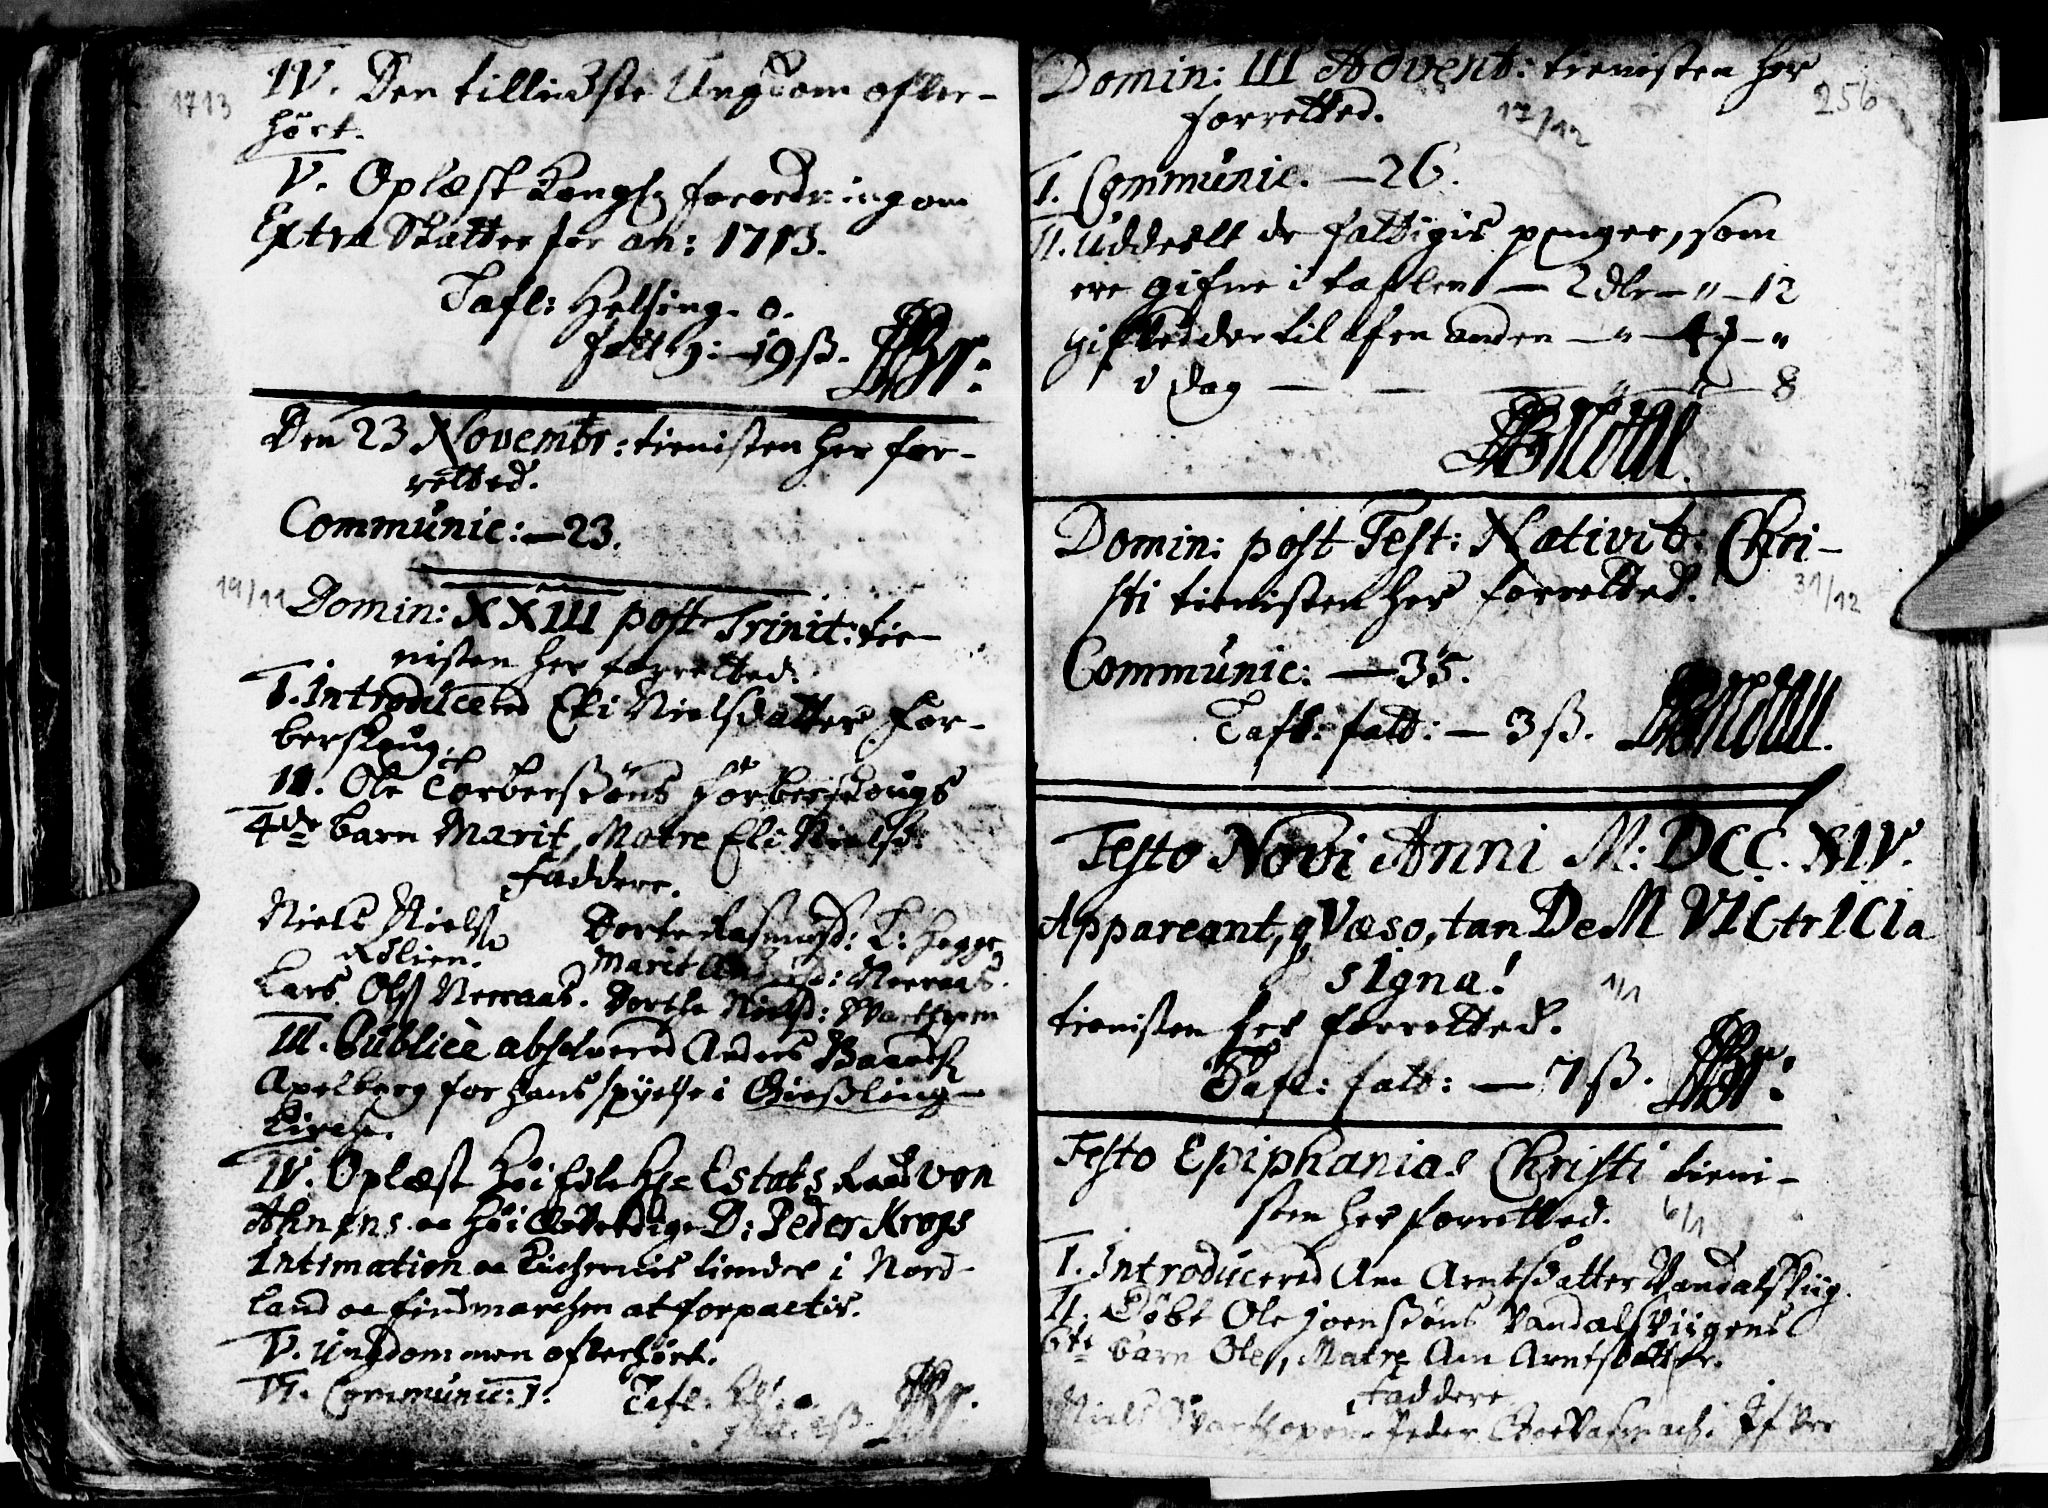 1713
IV. Den tilliudste Ungdom ofver-
hört.
V. Oplæst Kongl: forordning om
Extra Skatter for an: 1713.
Tafl: Helsing. 0.
fatt: — 19 ß.
Den 23 Novembr: tienisten her for-
retted.
Communic: — 23.
19/11
Domin: XXIII post Trinit: tie-
nisten her forretted.
I. Introducered Eli Nielsdatter For-
berskoug.
II. Ole Torbersøns Forberskougs
4de barn Marit, Matre Eli Nielsd:
Faddere.
Niels Niels.
Dorte Rasmusd: L: Hegge
Rølien.
Marit Neeraas.
Lars Ols. Neeraas. Dorthe Nielsd: Svarthopen
III. Publicè absolvered Anders
Apelberg for hans spyelse i Giesling-
Kirche.
IV. Oplæst Höi Edle Hr Estats Raad von
Ahnens oc Höi Ærverdige D: Peder Krogs
Intimation oc Kirchernis tiender i Nord-
land oc Findmarchen at forpactis.
V. Ungdommen ofverhört.
VI. Communic: 1.
Tafl: Hels: 0.
256
Domin: III Advent: tienisten her
forretted.
17/12
I. Communic. — 26.
II. Uddeelt de fattigis penger, som
ere gifne i taflen — 2 dlr — " — 12
i dag — — " — 8
Domin: post Fest: Nativit: Chri-
sti tienisten her forretted.
31/12
Communic: — 35.
Tafl: fatt: — 3 ß.
Festo Novi Anni M: DCC. XIV.
Appareant, qVæso, tanDeM VICtrICIa
sIgna!
1/1
tienisten her forretted.
Tafl: fatt: — 7 ß.
Festo Epiphanias Christi tieni-
sten her forretted.
6/1
I. Introducered Ane Arntsdatter Vandalsviig.
II. Döbt Ole Joensøns Vandalsviigens
6te barn Ole, Matre Ane Arntsdatter.
Faddere
Niels Svarthopen. Peder